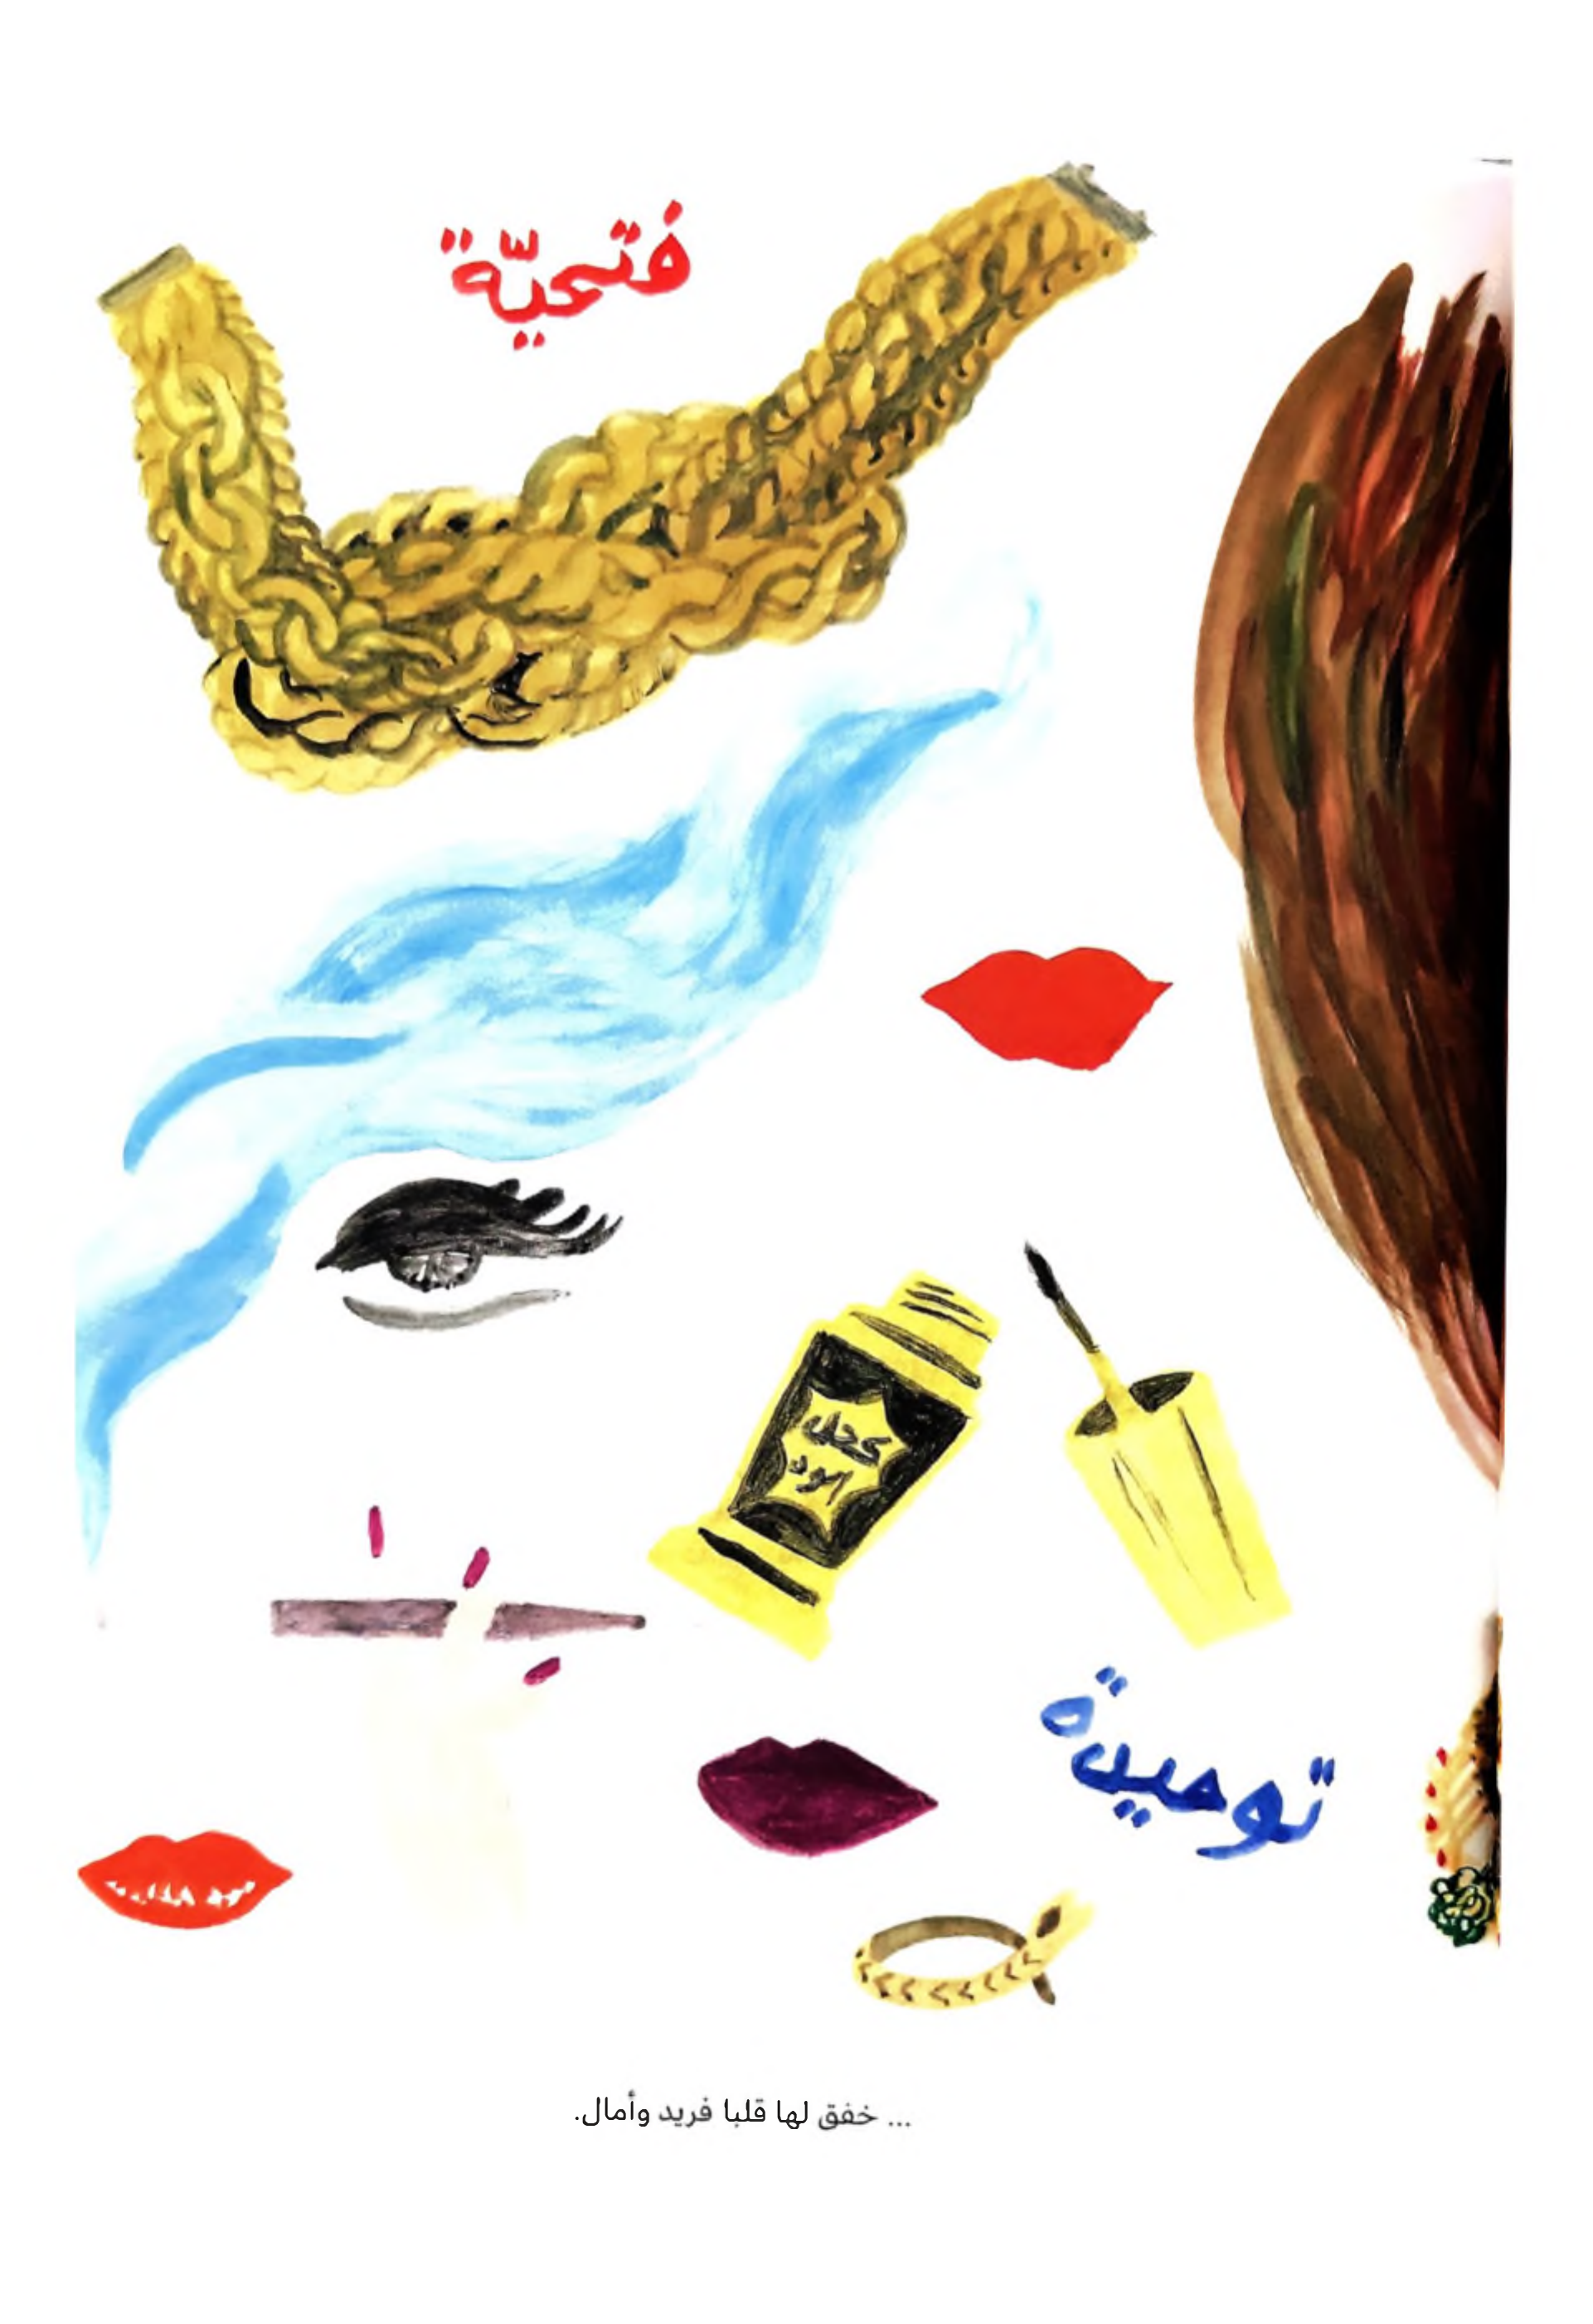 فتحيّة
كحل
اسود
توحيدة
... خفق لها قلبا فريد وأمال.